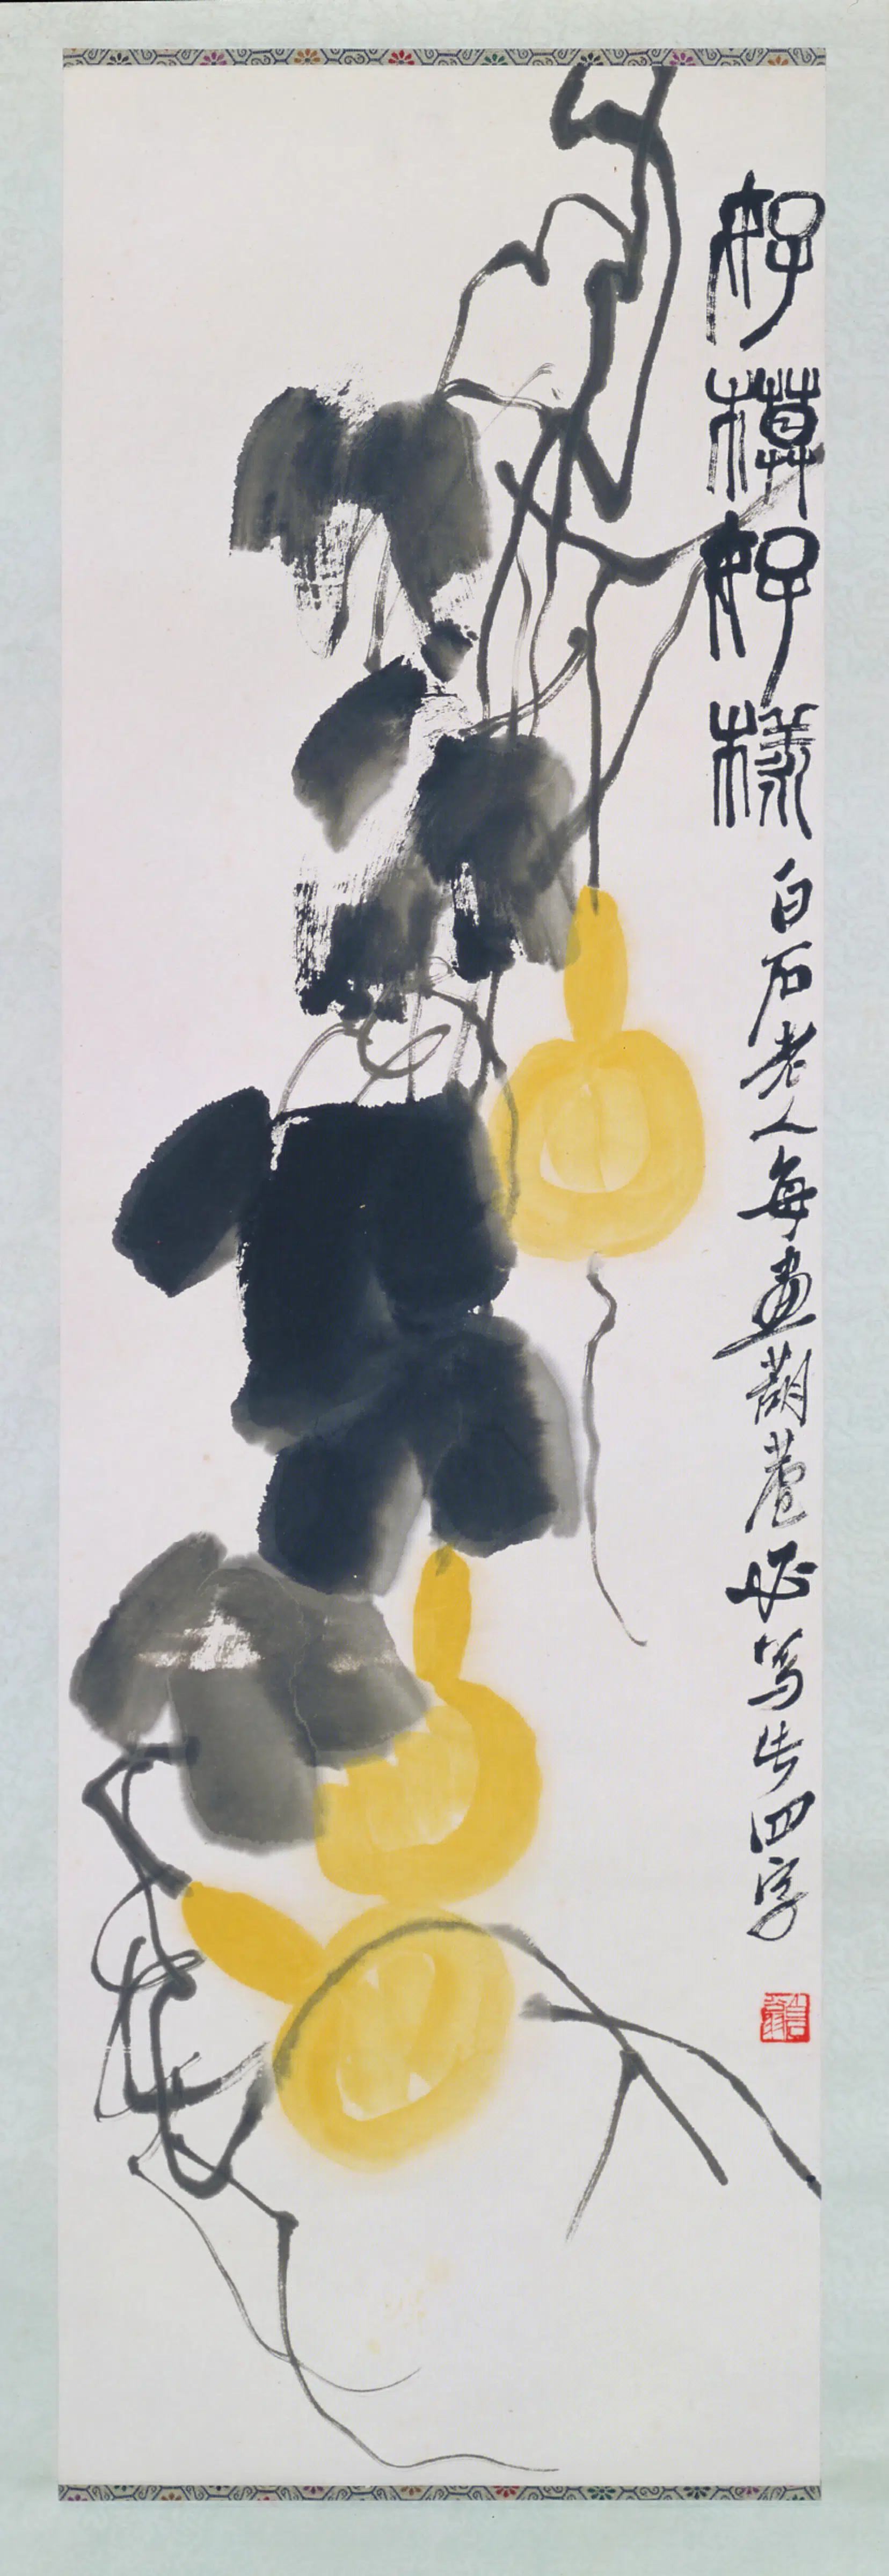 好模好樣白石老人每畫葫蘆必寫此四字